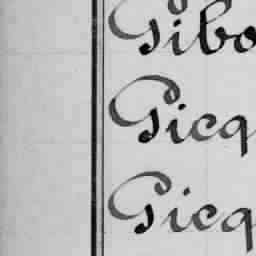 Gibo
Gicq
Gicq